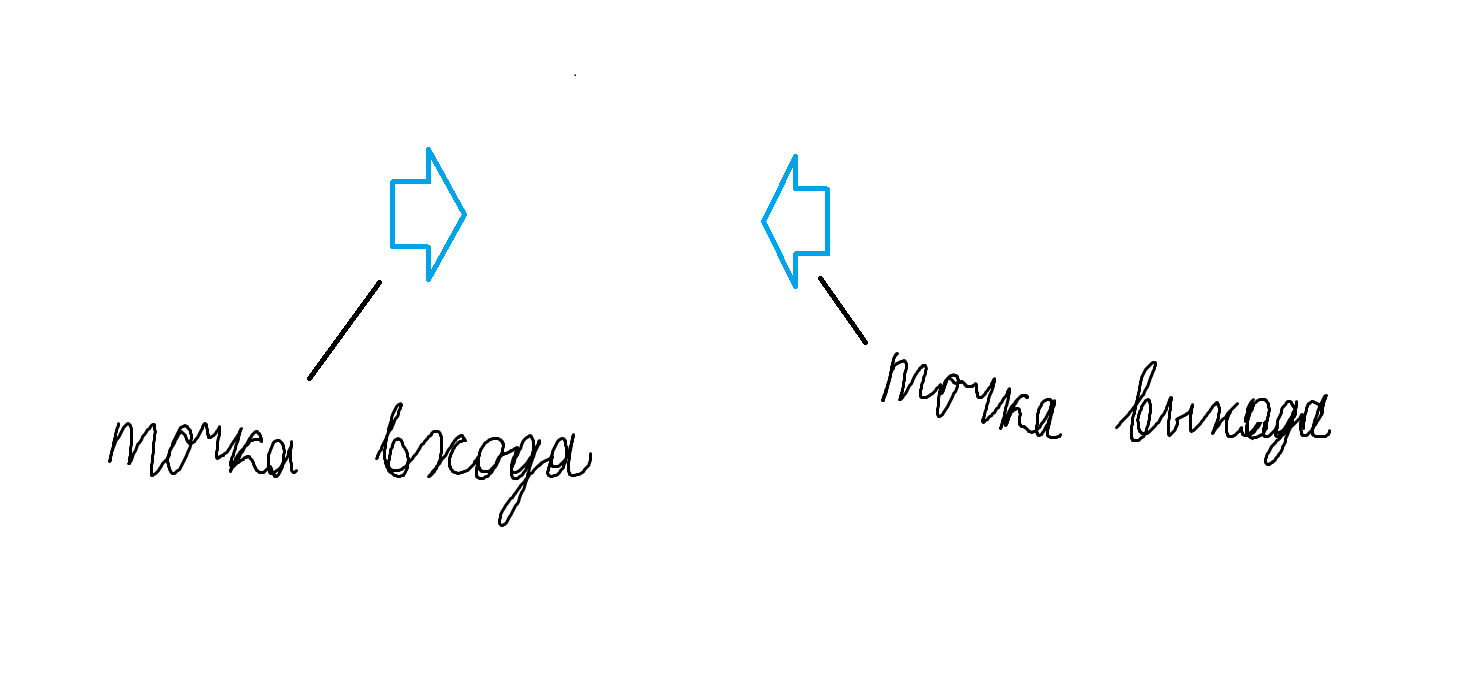 точка входа
точка выхода